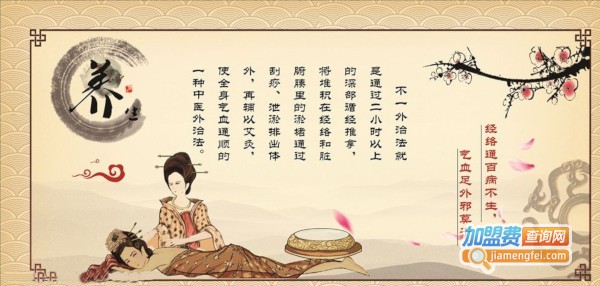 养生
不一外治法就
是通过二小时以上
的深部循经推拿，
将堆积在经络和脏
腑腠里的淤堵通过
刮痧、泄淤排出体
外，再辅以艾灸，
使全身气血通顺的
一种中医外治法。
经络通百病不生，
气血足外邪莫
加盟费查询网
jiamengfei.com